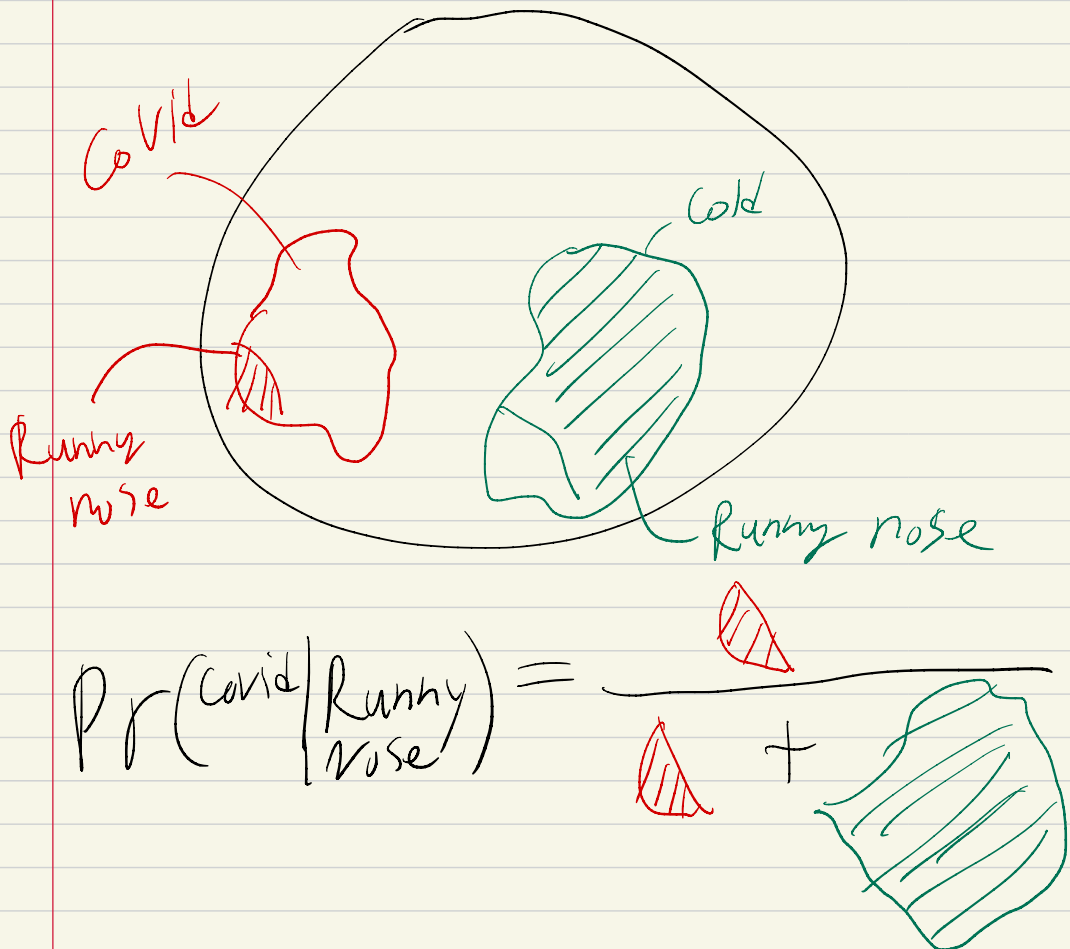 Covid
Cold
Runny
nose
Runny nose
Pr(Covid|Runny
nose) =
+